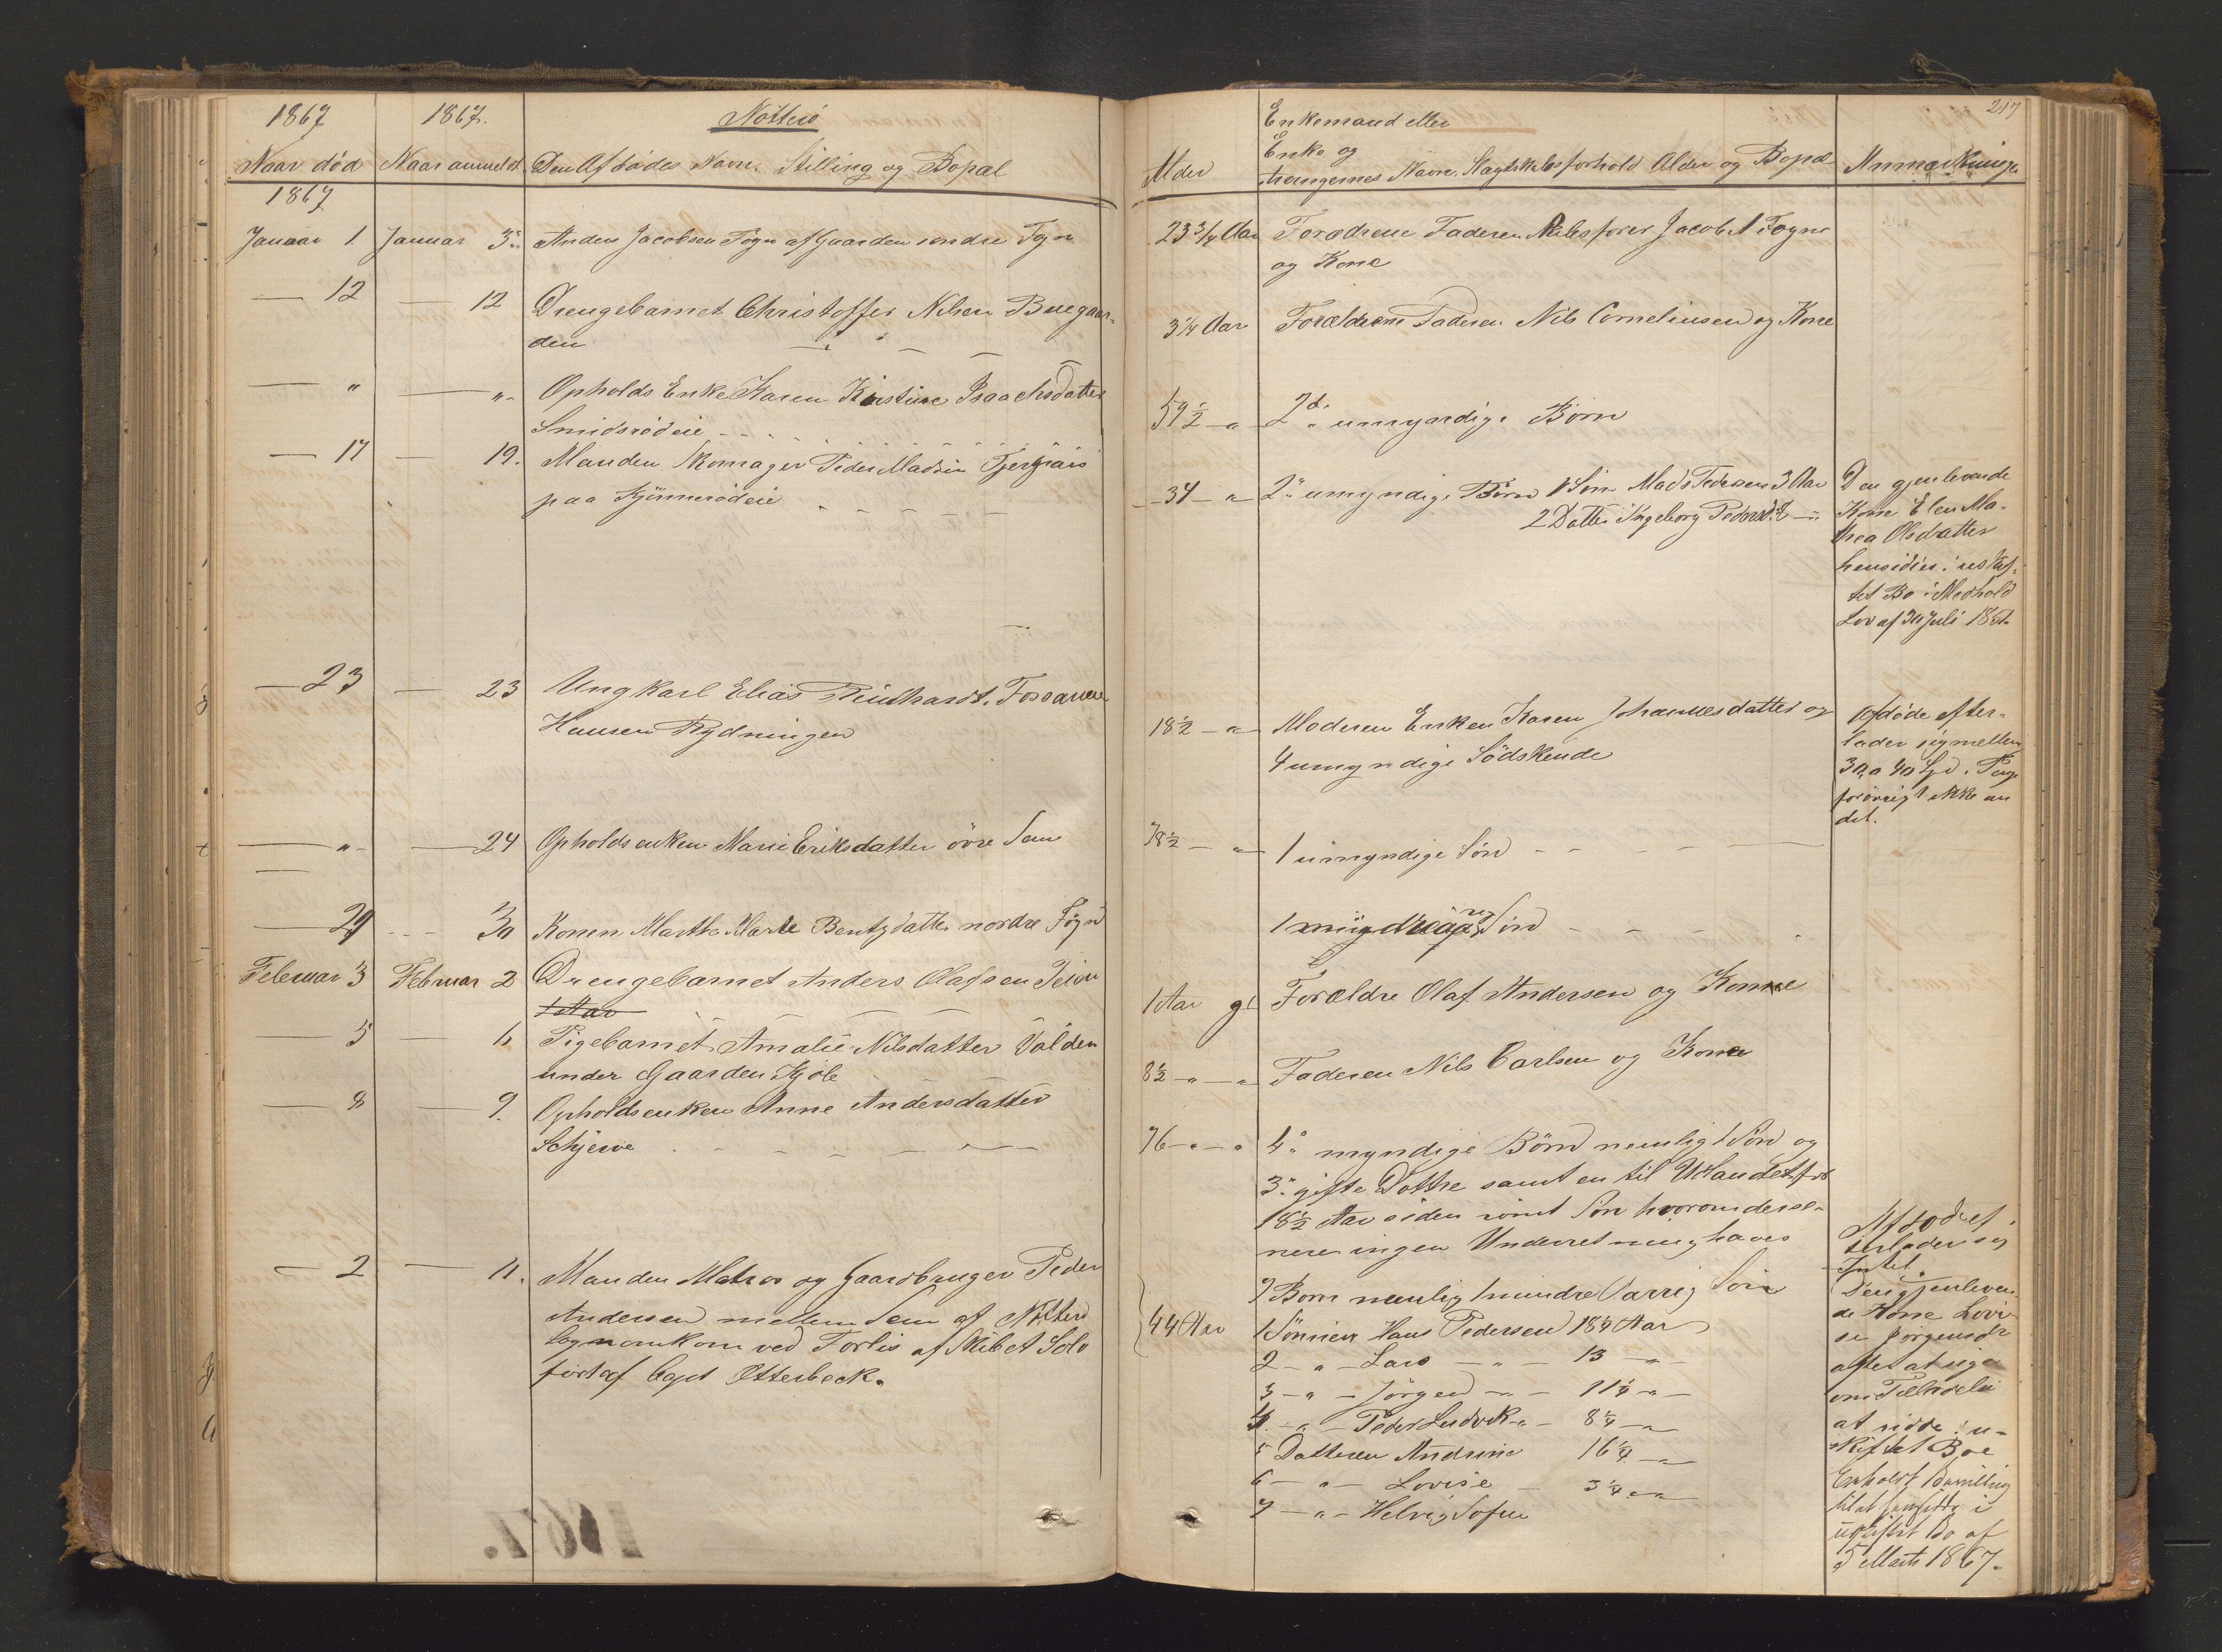 1867
1867.
Nötterö
Naar död
Naar anmeldt
Den Afdödes Navn. Stilling og Bopæl
1867
Januar 1.
Januar 3.
Anders Jacobsen Fögn af Gaarden söndre Fögn
12
12
Drengebarnet Christoffer Nilsen Buegaar-
den
"
"
Opholds Enke Karen Kirstine Isaachsdatter
Smidsrödeie
17
19.
Manden Skomager Peder Madsen
paa
23
23
Ungkarl Elias Reinhardt.
Hansen Rydningen
"
24
Opholdsenken Marie Eriksdatter övre Sem
29
30
Konen Marthe Marie Bentsdatter nordre Fögn
Februar 3
Februar 2
Drengebarnet Anders Olafsen
1 Aar
5
6
Pigebarnet Amalie Nilsdatter
under Gaarden
8
9.
Opholdsenken Anne Andersdatter
Schjerve
2
11.
Manden Matros og Gaardbruger Peder
Andersen mellem Sem af Nötterö
Sogn omkom ved Forlis af Skibet Solo
fört af Capt Otterbeck.
1867.
217
Alder
Enkemand eller
Enke og
Arvingernes Navn. Slægtskabsforhold Alder og Bopæl
Anmærkninger
23 3/4 Aar
Forældrene Faderen Skibsförer Jacob A Fögn
og Kone
3 1/4 Aar
Forældrene Faderen Nils Corneliusen og Kone
59 1/2 - "
2 umyndige Börn
34 - "
2 umyndige Börn 1 Sön Mads Pedersen 3 Aar
2 Datter Ingeborg
Den gjenlevende
Kone Elen Ma-
thea Olsdatter
hensidder i uskif-
tet Bo i Medhold
Lov af 30 Juli 1851.
18 1/2 - "
Moderen Enken Karen Johannesdatter og
4 umyndige Södskende
Afdöde efter-
lader sig mellem
30 a 40 Spd. i Penge
forövrigt ikke an
det.
78 1/2 - "
1 umyndige Sön
1 Sön
1 Aar gl
Forældre Olaf Andersen og Kone
8 1/2 - "
Faderen Nils Carlsen og Kone
76 - "
4 myndige Börn nemlig 1 Sön og
3 gifte Döttre samt en til Udlandet for
18 1/2 Aar siden römt Sön hvorom derse-
nere ingen Underretning haves
Afdöde ef-
terlader sig
Intet.
44 Aar
7 Börn nemlig mindreaarrig
1 Sönnen Hans Pedersen 18 1/4 Aar
2 - " - Lars - " - 13 - " -
3 - " - Jörgen - " - 11 1/4 - " -
4 - " - Peder Ludvik - " - 8 1/4 - " -
5 Datteren Andrine 16 1/4 - " -
6 - " - Lovise - 3 1/4 - " -
7 - " - Helvig Sofie
Den gjenleven
de Kone Lovi
se Jörgensdr
agter at söge
om Tilladelse
at sidde i u-
skiftet Boe
Erholdt Bevilling
til at hensidde i
uskiftet Bo af
5 Marts 1867.